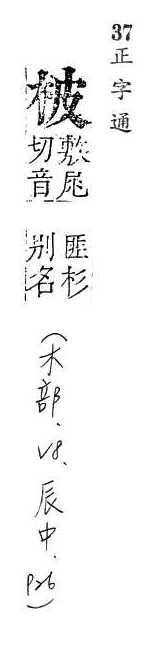 37正字通
柀
敷尾
切音
匪杉
別名
(木部. V8. 辰中. P26)